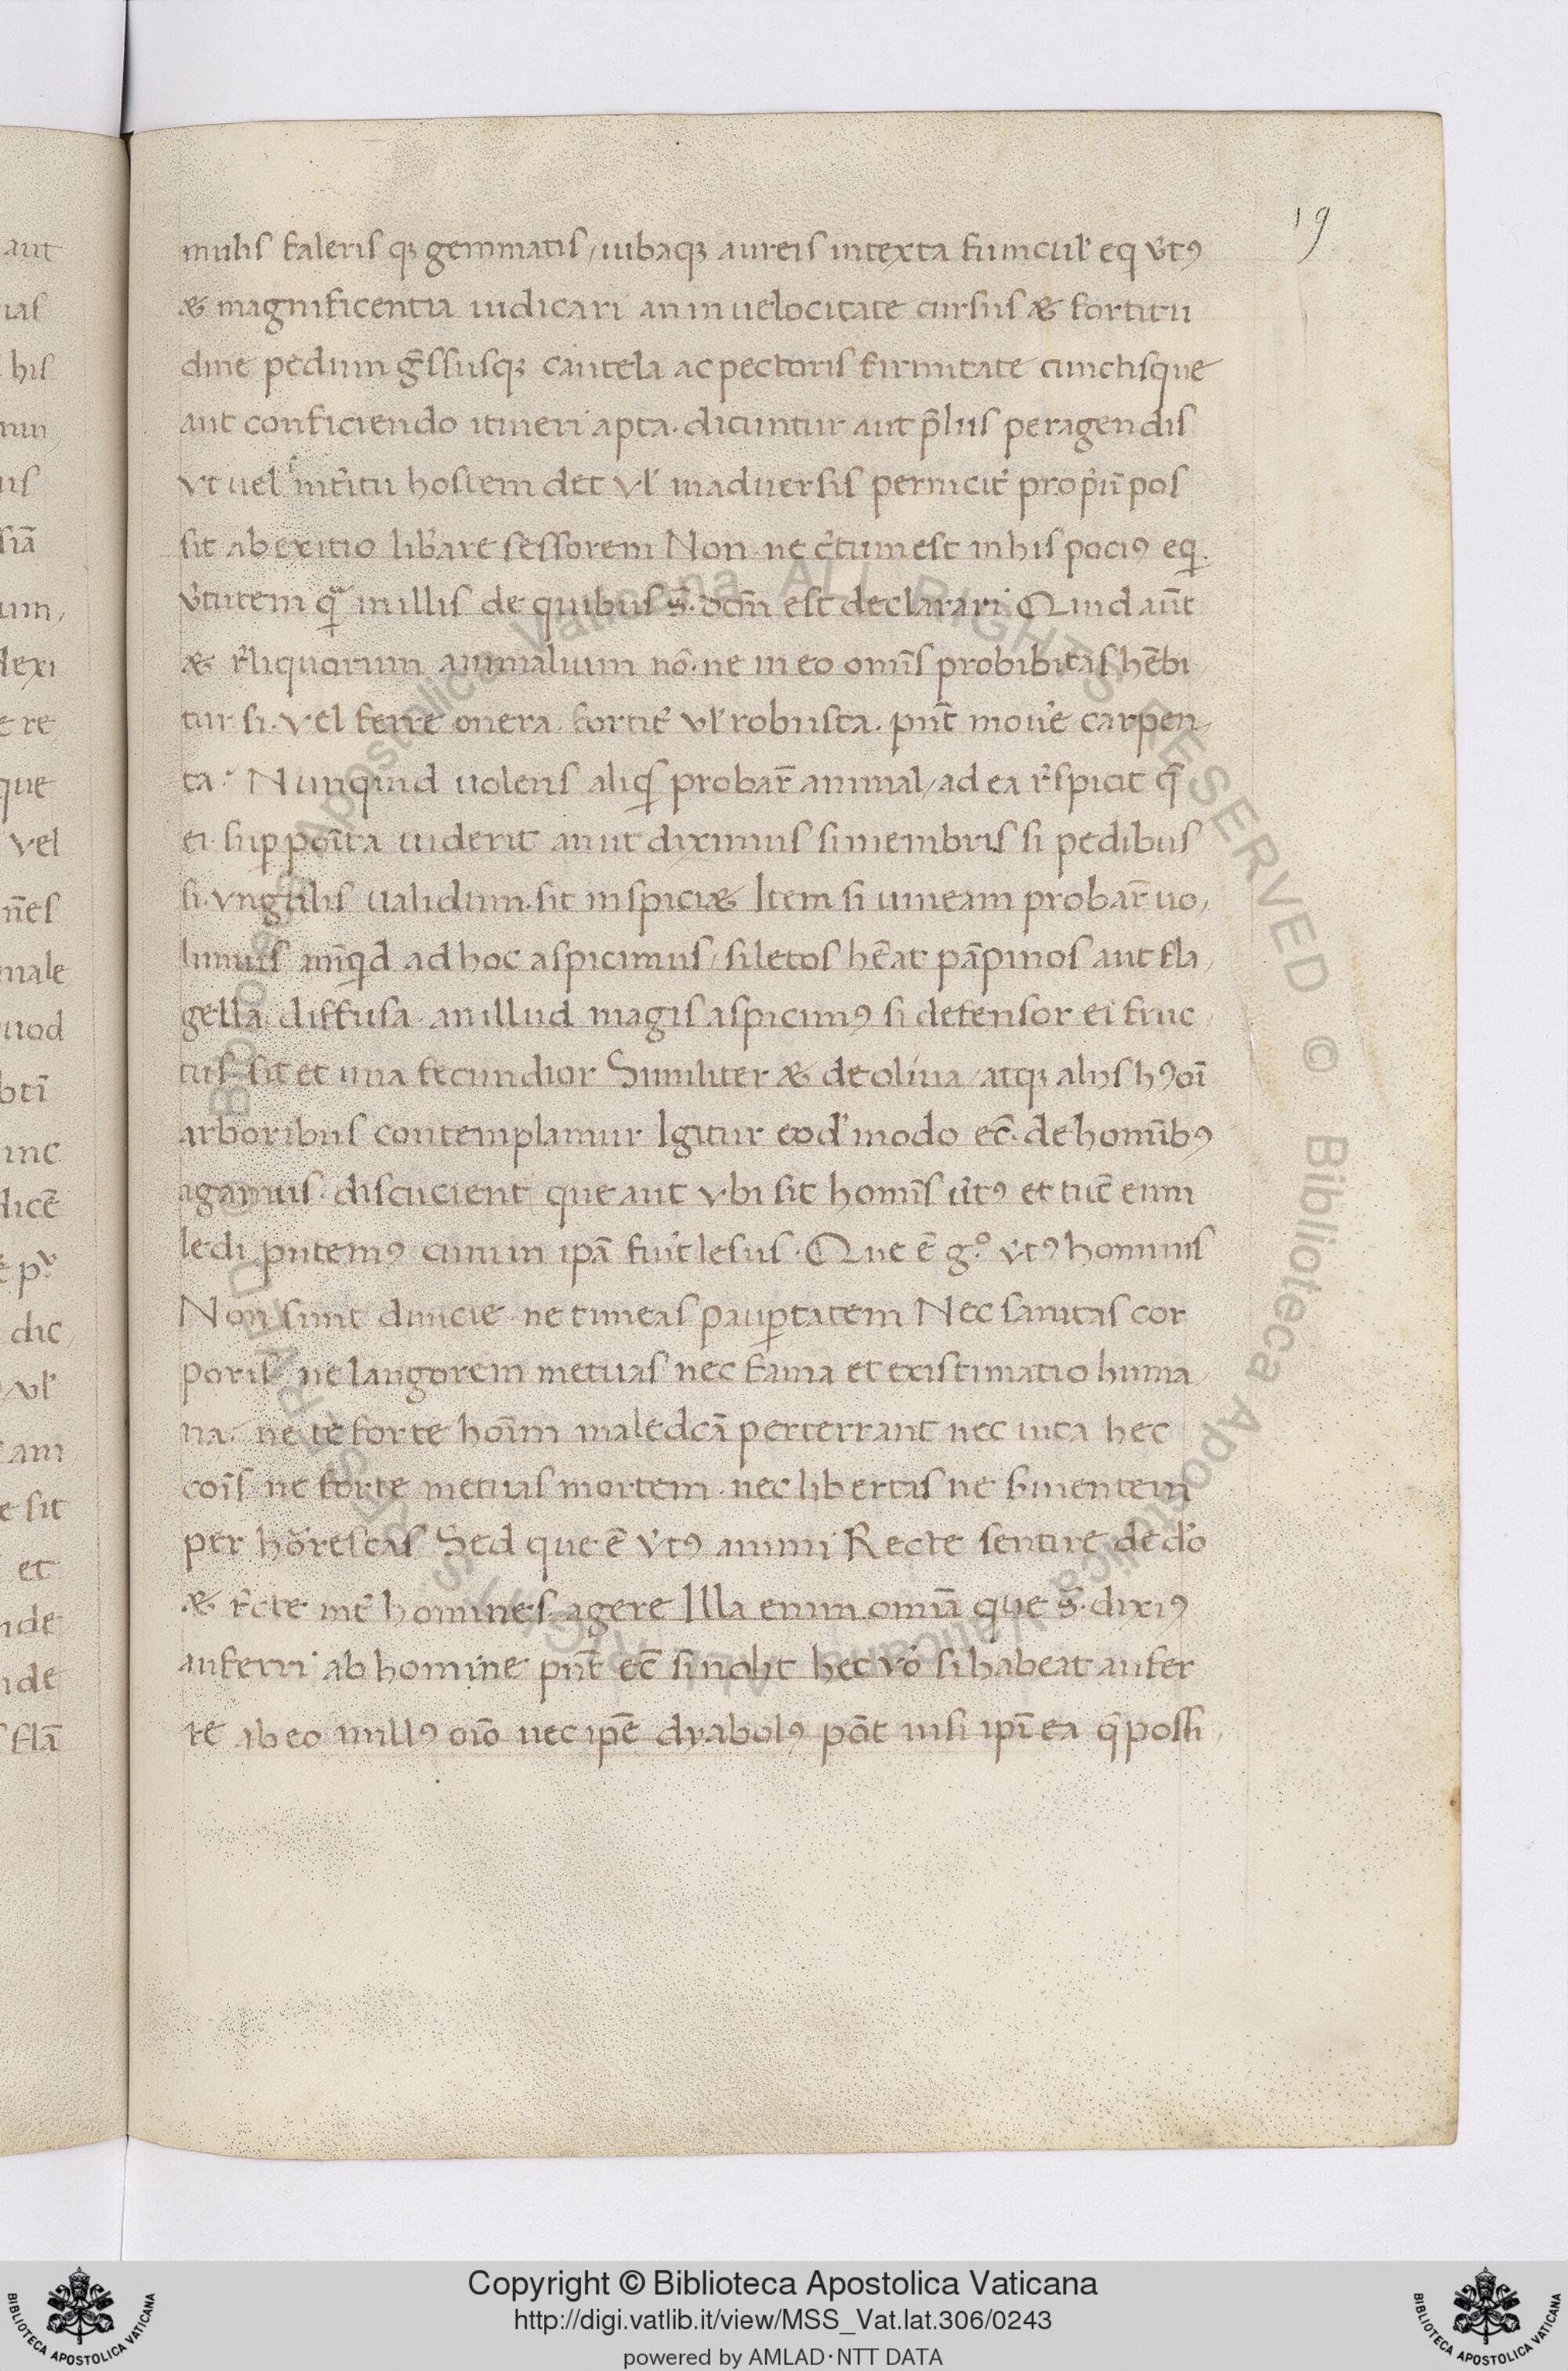 19
mulis faleris qꝫ gemmatis / iubaqꝫ aureis intexta funicul̓ eq v̓tꝰ
& magnificentia iudicari an in uelocitate cursus & fortitu
dine pedum gr̄ssusqꝫ cautela ac pectoris firmitate cunctisque
aut conficiendo itineri apta. dicuntur aut p̄liis peragendis
vt uel int̓itu hostem det vl̓ in aduersis pernicit̓ propiū pos
sit ab exitio lib̓are sessorem Non ne c̓tum est in his pociꝰ eqi
v̓tutem qͣ in illis de quibus s̄. dcm̄ est declarari Quid aūt
& r̓liquorum animalium nō. ne in eo omīs probibitas hēbi
tur si. vel ferre onera. fortit̓ vl̓ robusta. pn̄t mouͤe carpen
ta? Nunquid uolens aliqs probar̄ animal / ad ea r̓spicit q̄
ei supposita uiderit an ut diximus si membris si pedibus
si. vngulis ualidum. sit inspici& Item si uineam probar̄ uo,
lumus nūqd ad hoc aspicimus / si letos hēat pāpinos aut fla,
gella diffusa. an illud magis aspicimꝰ si defensor ei fruc
tus sit et uua fecundior Similiter & de oliua / atqꝫ aliis hꝰoī
arboribus contemplamur Igitur eod̓ modo ec̄. de homībꝰ
agamus. discucient que aut vbi sit homīs u̓tꝰ et tūc enim
ledi putemꝰ cum in ipā fuit̓ lesus. Que ē g.ͦ v̓tꝰ hominis
Non sunt diuicie. ne timeas paup̱tatem Nec sanitas cor
poris ne langorem metuas nec fama et existimatio huma,
na. ne te forte hoīm maledcā perterrant nec uita hec
coīs ne forte metuas mortem. nec libertas ne s̓uientem
per hor̓rescas Sed que ē v̓tꝰ animi Recte sentire de d̓o
& r̓cte int̓ homines. agere Illa enim. omīa que s̄. dixiꝰ
auferri ab homine pn̄t ec̄ si nolit hec v̓o si habeat aufer
re ab eo nullꝰ oīo nec ipē dyabolꝰ pōt nisi ipī ea q̄ possi,
aut
uas
his
que
vel
male
quod
dic
am
e sit
et
nde
nde
Copyright © Biblioteca Apostolica Vaticana
http://digi.vatlib.it/view/MSS_Vat.lat.306/0243
powered by AMLAD·NTT DATA